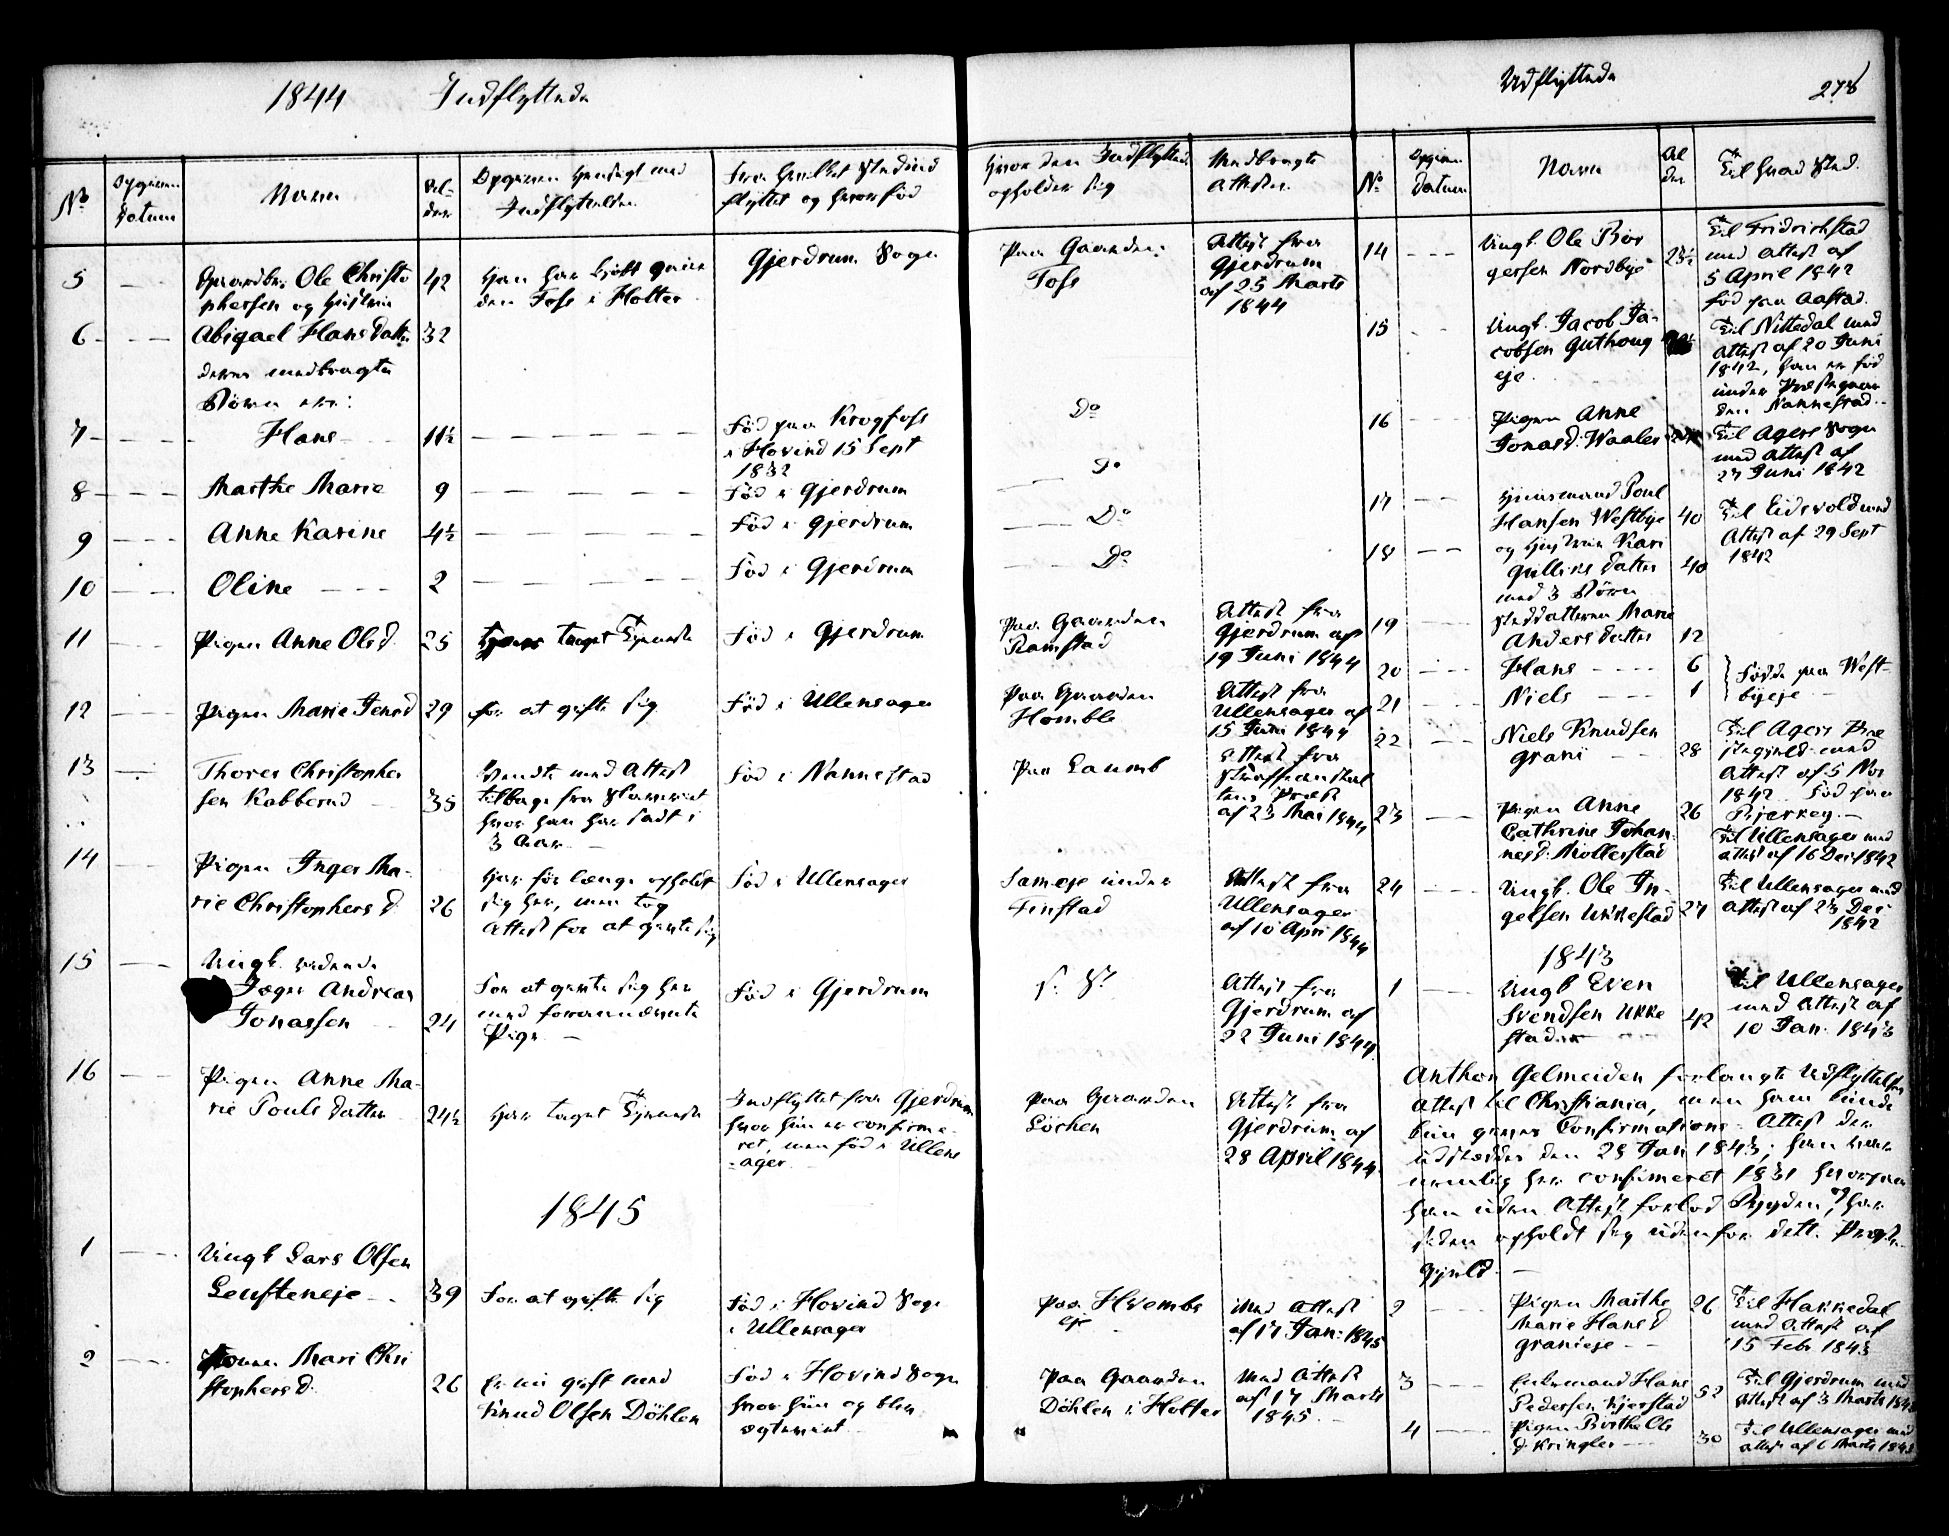 1844 Indflyttede
Udflyttede
278
No
Opgiven Datum
Navn
Alder
Opgiven Hensigt med Indflyttelsen
Fra hvilket Sted ind flyttet og hvor født
Hvor den Indflyttede opholder sig
Medbragte Attester
No
Opgiven Datum
Navn
Alder
Til hvad Sted
5
Gaardbr. Ole Christo
phersen og Hustrue
42
Han har kjøbt Gaar
den Foss i Holter
Gjerdrum Sogn
Paa Gaarden
Foss
Attest fra
Gjerdrum
af 25 Marts
1844
6
Abigael Hansdatter
32
deres medbragte
Børn ere:
7
Hans
11½
Fød paa Krogfoss
i Hovind 15 Sept
1832
Do
8
Marthe Marie
9
Fød i Gjerdrum
Do
9
Anne Karine
4½
Fød i Gjerdrum
Do
10
Oline
2
Fød i Gjerdrum
Do
11
Pigen Anne Olsd.
25
taget Tjeneste
Fød i Gjerdrum
Paa Gaarden
Ramstad
Attest fra
Gjerdrum af
19 Juni 1844
12
Pigen Marie Jensd
29
for at gifte sig
Fød i Ullensager
Paa Gaarden
Homble
Attest fra
Ullensager af
15 Juni 1844
13
Thorer Christopher
sen Kabberud
35
Vendte med Attest
tilbage fra Slaveriet
hvor han har sadt i
3 Aar
Fød i Nannestad
Paa Laumb
Attest fra
Straffeanstal
tens Præst
af 23 Mai 1844
14
Pigen Inger Ma-
rie Christophersd
26
Har før længe opholdt
sig her, men tog
Attest for at gifte sig
Fød i Ullensager
Sameje under
Finstad
Attest fra
Ullensager
af 10 April 1844
15
Ungk.
Jæger Andreas
Jonassen
24
For at gifte sig her
med forannævnte
Pige
Fød i Gjerdrum
s. St.
Attest fra
Gjerdrum af
22 Juni 1844
16
Pigen Anne Ma-
rie Poulsdatter
24½
Har taget Tjeneste
Indflyttet fra Gjerdrum
hvor hun er confirme-
ret, men fød i Ullens
-ager
Paa Gaarden
Løchen
Attest fra
Gjerdrum af
28 April 1844
1845
1
Ungk Lars Olsen
Leufteneje
39
For at gifte sig
Fød i Hovind Sogn
i Ullensager
Paa Hvembs
eje
Med Attest
af 17 Jan: 1845
2
Mari Chri
stophersd.
26
Er nu gift med
Knud Olsen Döhlen
Fød i Hovind Sogn
hvor hun og blev
ægteviet
Paa Gaarden
Döhlen i Holter
Med Attest
af 17 Marts
1845
14
Ungk. Ole Bør
gersen Nordbye
23½
Til Fridrichstad
med Attest af
5 April 1842
fød paa Aastad
15
Ungk. Jacob Ja-
cobsen Guthoug
eje
Til Nittedal med
Attest af 20 Juni
1842, han er fød
under Præstegaar
den Nannestad
16
Pigen Anne
Jonasd. Waaler
Til Agers Sogn
med Attest af
27 Juni 1842
17
Huusmand Poul
Hansen Westbye
40
Til Eidsvold med
Attest af 29 Sept
1842
18
og Hustrue Kari
Gulliksdatter
40
med 3 Børn
19
Steddatteren Marie
Andersdatter
12
20
Hans
6
Fødde paa West-
byeje
21
Niels
1
22
Niels Knudsen
Grani
28
Til Agers Præ
stegjeld med
Attest af 5 Nov
1842 Fød paa
Bjerkey
23
Pigen Anne
Cathrine Johan-
nesd. Mollerstad
26
Til Ullensager med
attest af 16 Dec 1842
24
Ungk. Ole In-
gelsen Ukkestad
27
Til Ullensager med
attest af 23 Dec
1842
1843
1
Ungk Even
Svendsen Ukke
stad
42
Til Ullensager
med Attest af
10 Jan. 1843
Anthon Gelmeiden forlangte Udflyttelses
Attest til Christiania, men ham kunde
kun gives Confirmations-Attest der
udstædtes den 28 Jan 1843; han var
nemlig her confirmeret 1831 hvorpaa
han uden Attest forlod Bygden, og har
siden opholdt sig udenfor dette Præste-
gjeld.
2
Pigen Marthe
Marie Hansd
Granieje
26
Til Hakkedal
med Attest af
15 Febr 1843
3
Enkemand Hans
Pedersen Kjerstad
52
Til Gjerdrum med
Attest af 3 Marts 1843
4
Pigen Birthe Ols
d Kringler
30
Til Ullensager med
attest af 6 Marts 1843